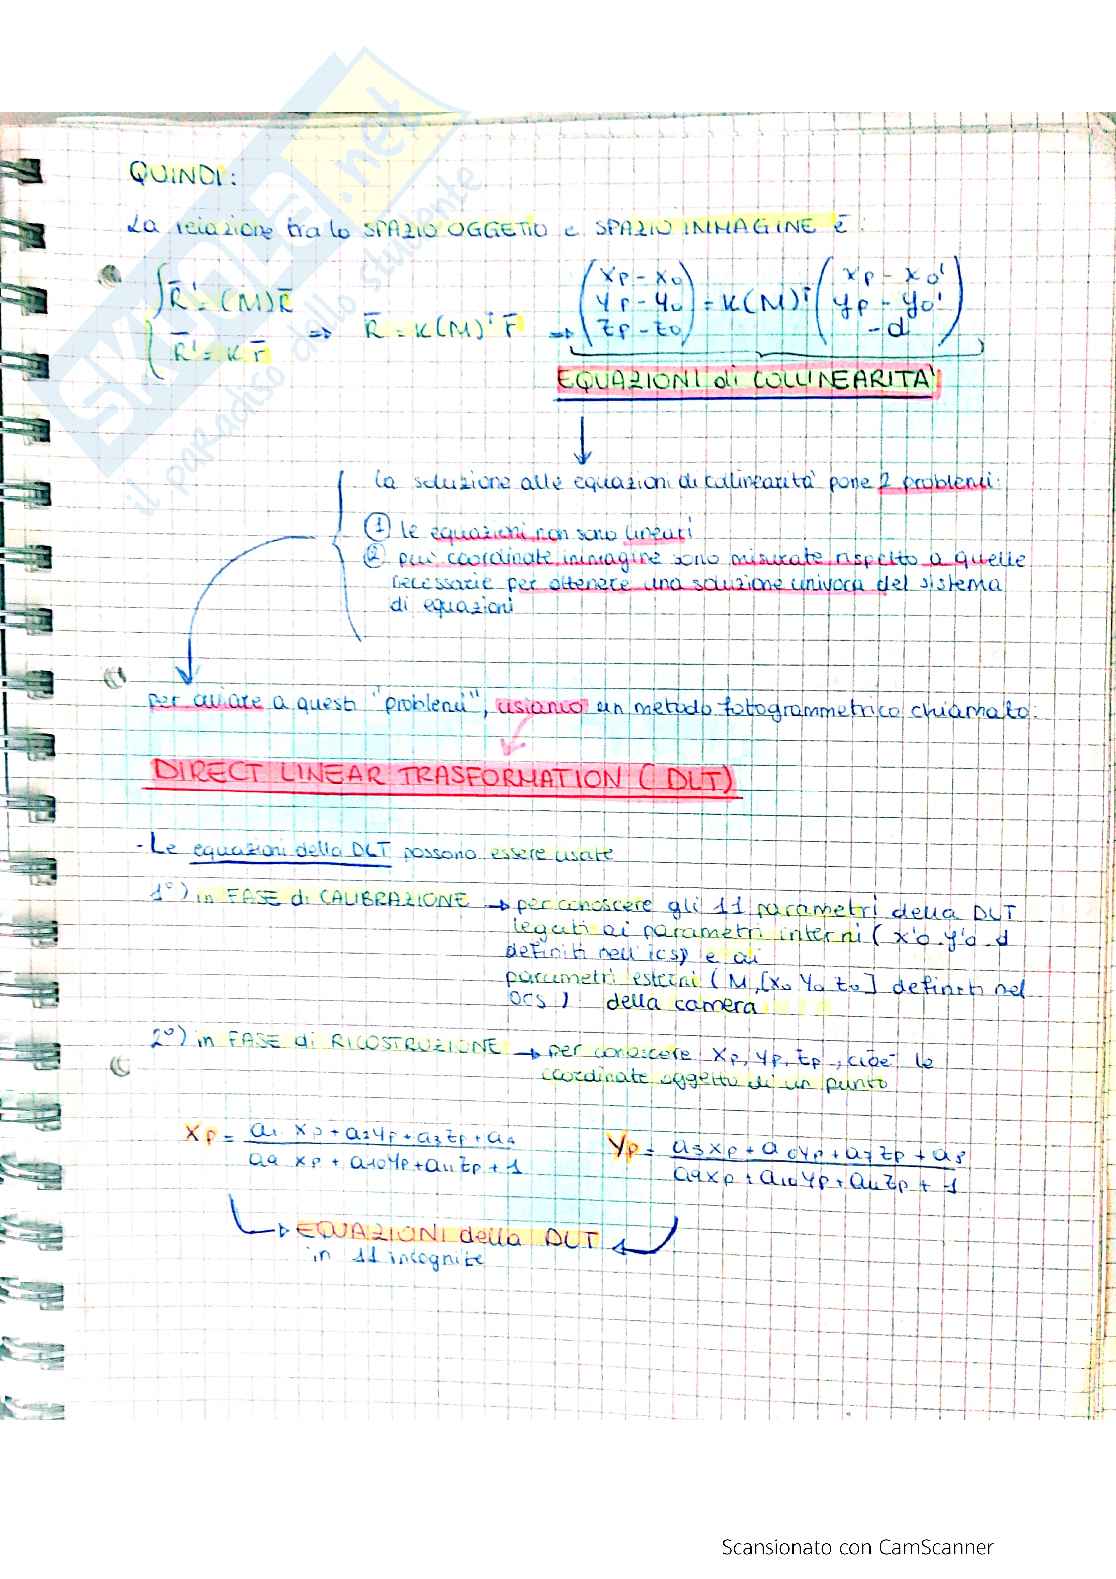 QUINDI:
La relazione tra lo SPAZIO OGGETTO e SPAZIO IMMAGINE è:
R̄' = (M) R̄
R̄' = K r̄
⇒ R̄ = K (M)ᵀ r̄ ⇒ (xp - x0, yp - y0, zp - z0) = K (M)ᵀ (x'p - x0', y'p - y0', -d)
EQUAZIONI di COLLINEARITÀ
la soluzione alle equazioni di collinearità pone 2 problemi:
① le equazioni non sono lineari
② più coordinate immagine sono misurate rispetto a quelle
necessarie per ottenere una soluzione univoca del sistema
di equazioni
per ovviare a questi "problemi", usiamo un metodo fotogrammetrico chiamato:
DIRECT LINEAR TRASFORMATION (DLT)
- Le equazioni della DLT possono essere usate
1°) in FASE di CALIBRAZIONE → per conoscere gli 11 parametri della DLT
legati ai parametri interni ( x'o y'o d
definiti nell'ics) e ai
parametri esterni ( M, [x0 y0 z0] definiti nel
OCS ) della camera
2°) in FASE di RICOSTRUZIONE → per conoscere xp, yp, zp, cioè le
coordinate oggetto di un punto
xp = (a1 xp + a2 yp + a3 zp + a4) / (a9 xp + a10 yp + a11 zp + 1)
yp = (a5 xp + a6 yp + a7 zp + a8) / (a9 xp + a10 yp + a11 zp + 1)
EQUAZIONI della DLT
in 11 incognite
SKUOLA.net
il paradiso dello studente
Scansionato con CamScanner